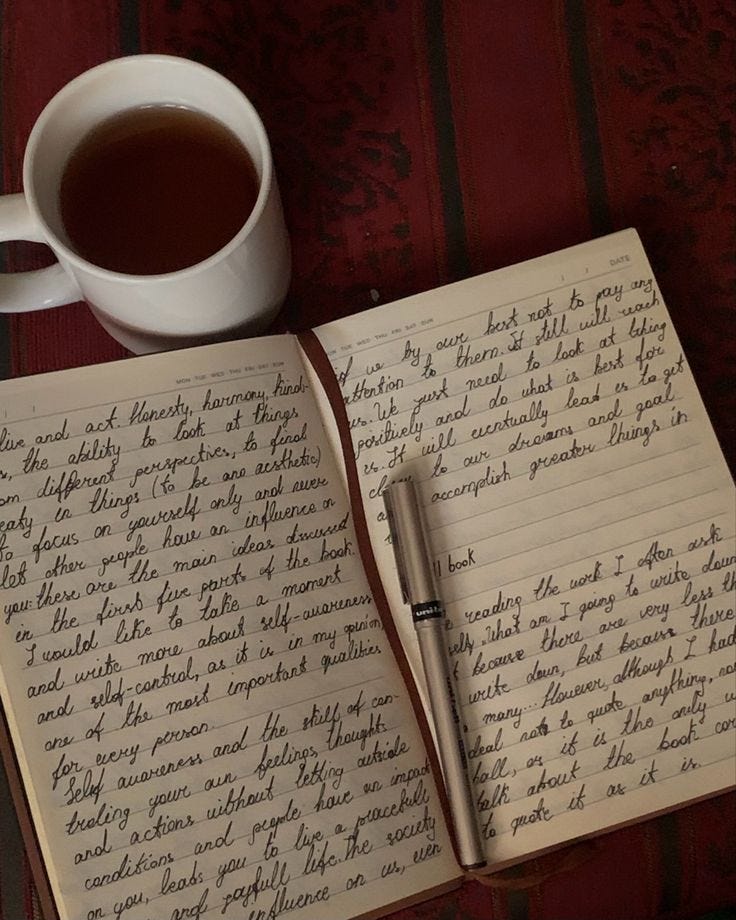 MON TUE WED THU FRI SAT SUN
live and act. Honesty, harmony, kind-
s, the ability to look at things
om different perspectives, to find
eaty in things (to be ano aesthetic)
to focus on yourself only and never
let other people have an influence on
you: these are the main ideas discussed
in the first five parts of the book.
I would like to take a moment
and write more about self-awareness
and self-control, as it is in my opinion
one of the most important qualities
for every person.
Self awareness and the skill of con-
troling your own feelings, thoughts
and actions without letting outside
conditions and people have an impact
on you, leads you to live a peacefull
and joyfull life. The society
influence on us, even
DATE
MON TUE WED THU FRI SAT SUN
if we by our best not to pay any
attention to them. It still will reach
us. We just need to look at thing
positively and do what is best for
us. It will eventually lead us to get
to our dreams and goal
accomplish greater things in
book
reading the work I often ask
self, "What am I going to write down
because there are very less th
write down, but because there
many... However, although I had
deal not to quote anything, no
ball, as it is the only w
talk about the book co
to quote it as it is.
uni